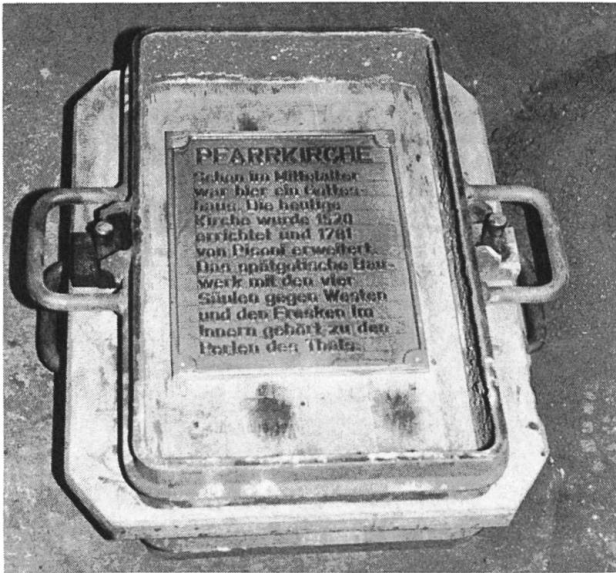 PFARRKIRCHE
Schon im Mittelalter
war hier ein Gottes-
haus. Die heutige
Kirche wurde 1520
errichtet und 1761
von Pisoni erweitert.
Das spätgotische Bau-
werk mit den vier
Säulen gegen Westen
und den Fresken im
Innern gehört zu den
Perlen des Thals.